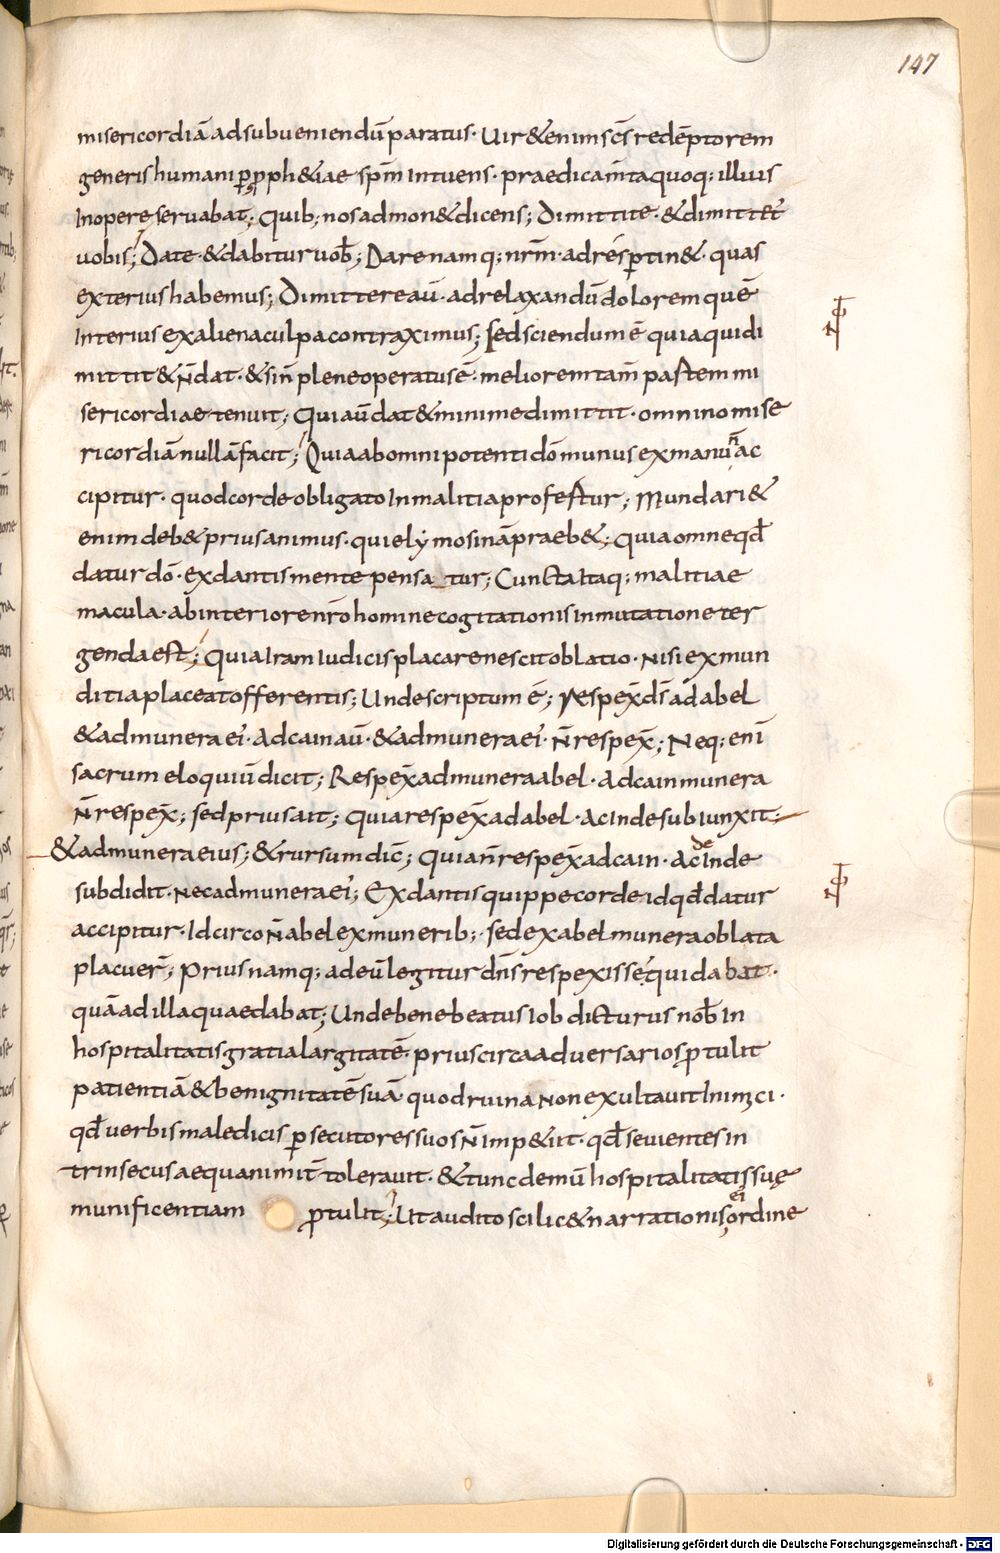 147
misericordiā ad subueniendū paratus· Uir & enim scs̄ redēptorem
generis humani ꝑ ꝓph&iae spm̄ intuens· praedicam̄ta quoq; illius
in opere seruabat; Quib; nos admon& dicens; Dimittite· & dimittet̄
uobis; Date· & dabitur uob̄; Dare namq; nr̄m· ad rē ꝑtin&· quas
exterius habemus; Dimittere aū· ad relaxandū dolorem quē
interius ex aliena culpa contraximus; Sed sciendum ē quia qui di
mittit & n̄ dat· & si n̄ plene operatus ē· meliorem tam̄ partem mi
sericordiae tenuit; Qui aū dat & minime dimittit· omnino mise
ricordiā nullā facit; Quia ab omnipotenti dō munus ex manu n̄ ac
cipitur· quod corde obligato in malitia profertur; Mundari &
enim deb& prius animus· qui elymosinā praeb&; Quia omne qd̄
datur dō· ex dantis mente pensatur; Cuncta itaq; malitiae
macula· ab interiore nr̄o homine cogitationis inmutatione ter
genda est; Quia iram iudicis placare nescit oblatio· nisi ex mun
ditia placeat offerentis; Unde scriptum ē; Respex̄ ds̄ ad abel
& ad munera ei· ad cain aū· & ad munera ei· n̄ respex̄; Neq; enī
sacrum eloquiū dicit; Respex̄ ad munera abel· ad cain munera
n̄ respex̄; sed prius ait; quia respex̄ ad abel· ac inde subiunxit;
& ad munera eius; & rursum dic̄; quia n̄ respex̄ ad cain· ac deinde
subdidit· nec ad munera ei; Ex dantis quippe corde id qd̄ datur
accipitur· Idcirco n̄ abel ex munerib;· sed ex abel munera oblata
placuer̄; Prius namq; ad eū legitur dn̄s respexisse qui dabat·
quā ad illa quae dabat; Unde bene beatus Iob dicturus nob̄ in
hospitalitatis gratia largitatē· prius circa aduersarios ꝓtulit
patientiā & benignitatē suā· quod ruina non exultauit inimici·
qd̄ uerbis maledicis ꝑsecutores suos n̄ imp&iit· qd̄ seuientes in
trinsecus aequanimit̄ tolerauit· & tunc demū hospitalitatis suę
munificentiam ꝓtulit; Ut audito scilic& narrationis ei ordine
Digitalisierung gefördert durch die Deutsche Forschungsgemeinschaft - DFG